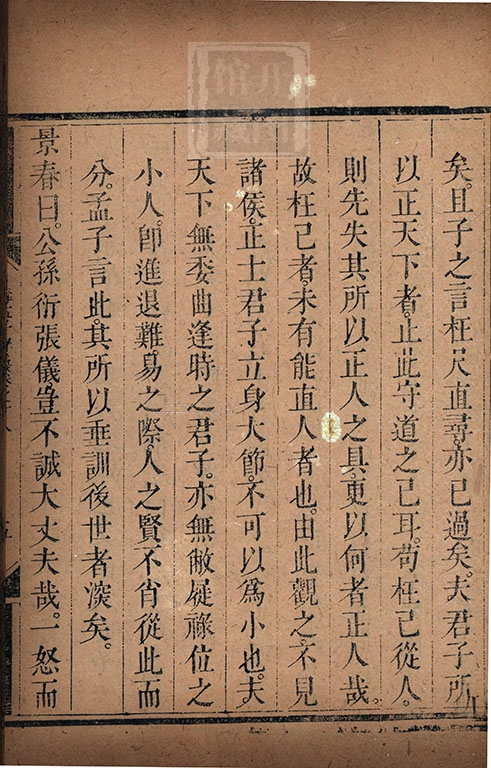 矣。且子之言枉尺直尋。亦已過矣。夫君子所
以正天下者。止此守道之己耳。苟枉己從人。
則先失其所以正人之具。更以何者正人哉。
故枉己者。未有能直人者也。由此觀之。不見
諸侯。正士君子立身大節。不可以為小也。夫
天下無委曲逢時之君子。亦無敝屣祿位之
小人。卽進退難易之際。人之賢不肖從此而
分。孟子言此。其所以垂訓後世者深矣。
景春曰。公孫衍張儀。豈不誠大丈夫哉。一怒而